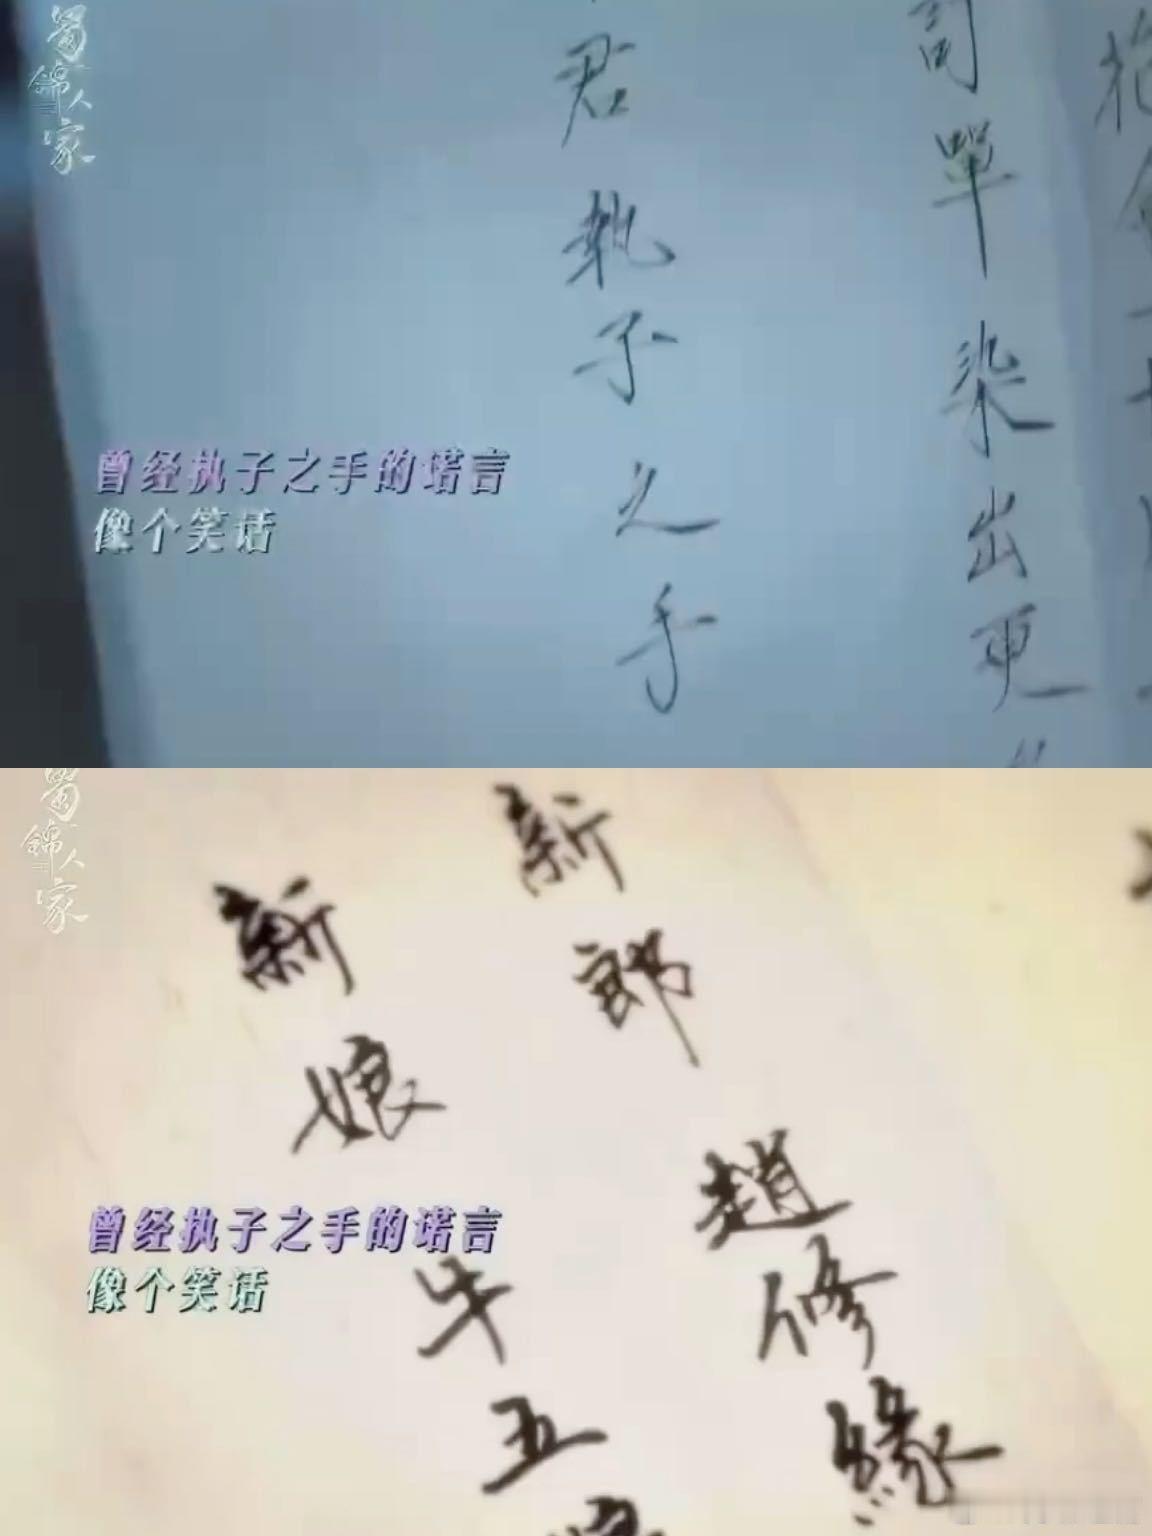 蜀锦人家
司單染出更
君執子之手
曾经执子之手的诺言
像个笑话
蜀锦人家
新郎趙修緣
新娘牛五
曾经执子之手的诺言
像个笑话